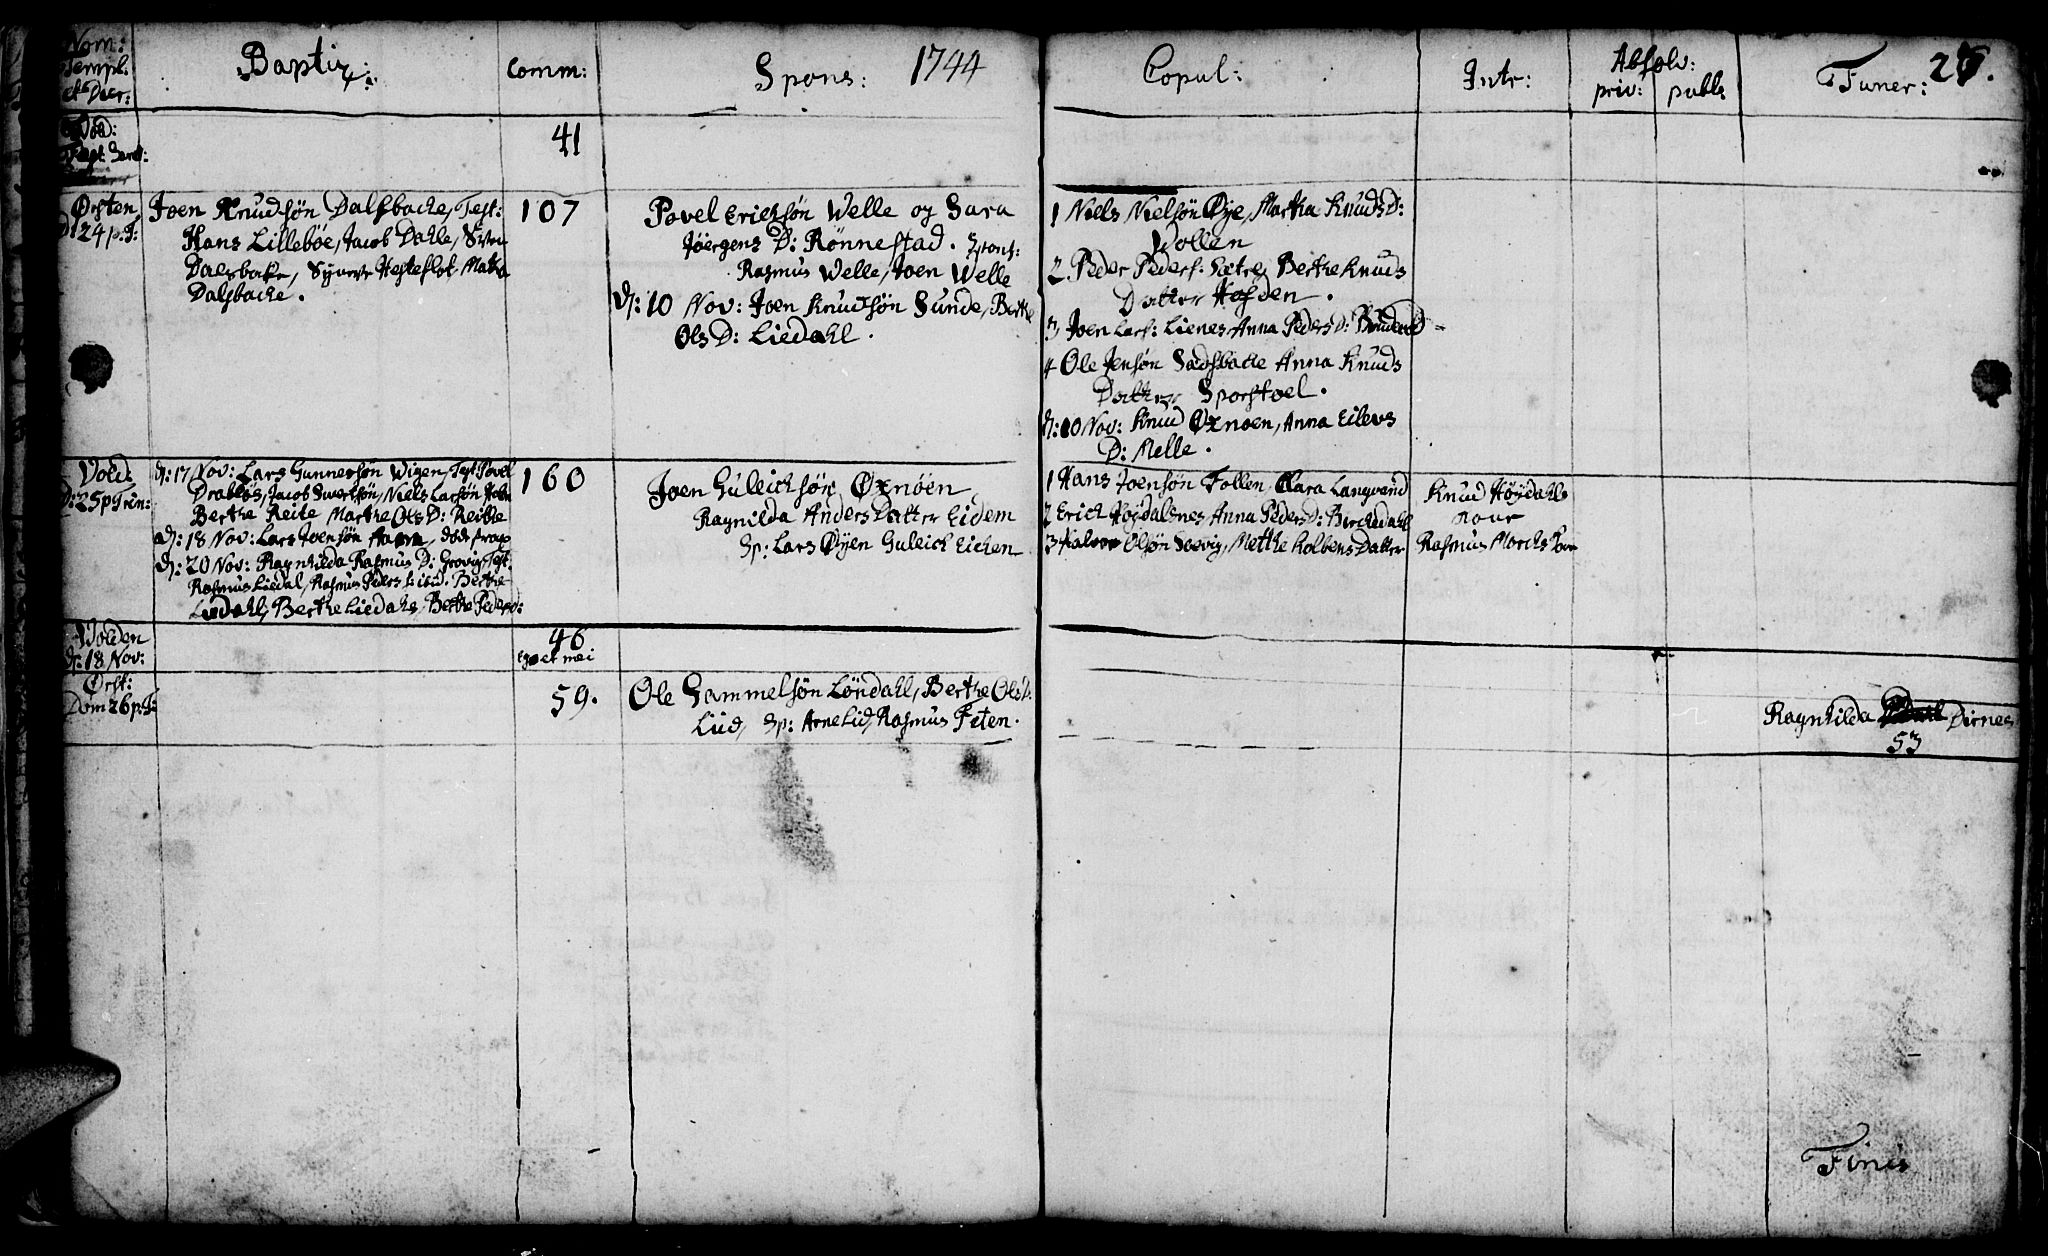 Nom:
Templ.
et Dier:
Baptiz:
Comm:
Spons:
1744
Copul:
Intr:
Absolv:
priv:
publ:
Funer:
26.
Vold:
41
Ørsten
D: 24 p. T:
Joen Knudsøn Dalsbache, Test:
Hans Lillebøe, Jacob Dahle, Sven
Dalsbache, Synneve Hesteflot Matha
Dalsbache.
107
Povel Erichsøn Welle og Sara
Jøergens D: Rønnestad. Spons:
Rasmus Welle, Joen Welle
d: 10 Nov: Joen Knudsøn Sunde, Berthe
Ols D: Liedahl.
1 Niels Nielsøn Øye, Martha Knuds D:
Wollen
2 Peder Peders: Sætre, Berthe Knuds
Datter Hofden.
3 Joen Lars: Lienes Anna Peders D:
4 Ole Jensøn Sadsbache Anna Knuds
Datter Sporstoel.
d: 10 Nov: Knud Øxnoen, Anna Eilevs
D: Melle.
Vold:
D: 25 p Trin:
d: 17 Nov: Lars Gunnersøn Wigen, Test: Povel
Drabløs, Jacob Sivertsøn, Niels Larsøn
Berthe Reite Marthe Ols D: Reithe
d: 18 Nov: Lars Joensøn
d: 20 Nov: Ragnhilda Rasmus D: Grovig, Test:
Rasmus Liedal, Rasmus Peders Liid. Berthe
Liedahl, Berthe Liedahls, Berthe Peders D:
160
Joen Guleichsøn Øxnøen,
Ragnilda Anders Datter Eidem
Sp: Lars Øyen Guleich Eichen
1 Hans Joensøn Follen, Clara Langvend
2 Erich Høydalsnes Anna Peders D: Birchedahl
3 Halvor Olsøn Soevig, Methe Kolbens Datter
Knud Høydahls
Kone
Rasmus Morchs Kone
Volden
d: 18 Nov:
46
Ego et mei
Ørst:
Dom 26 p. T:
59.
Ole Gammelsøn Løndahl, Berthe Ols D:
Liid, Sp: Arne Lid, Rasmus Feten.
Ragnhilda Dirnes
53
Finis